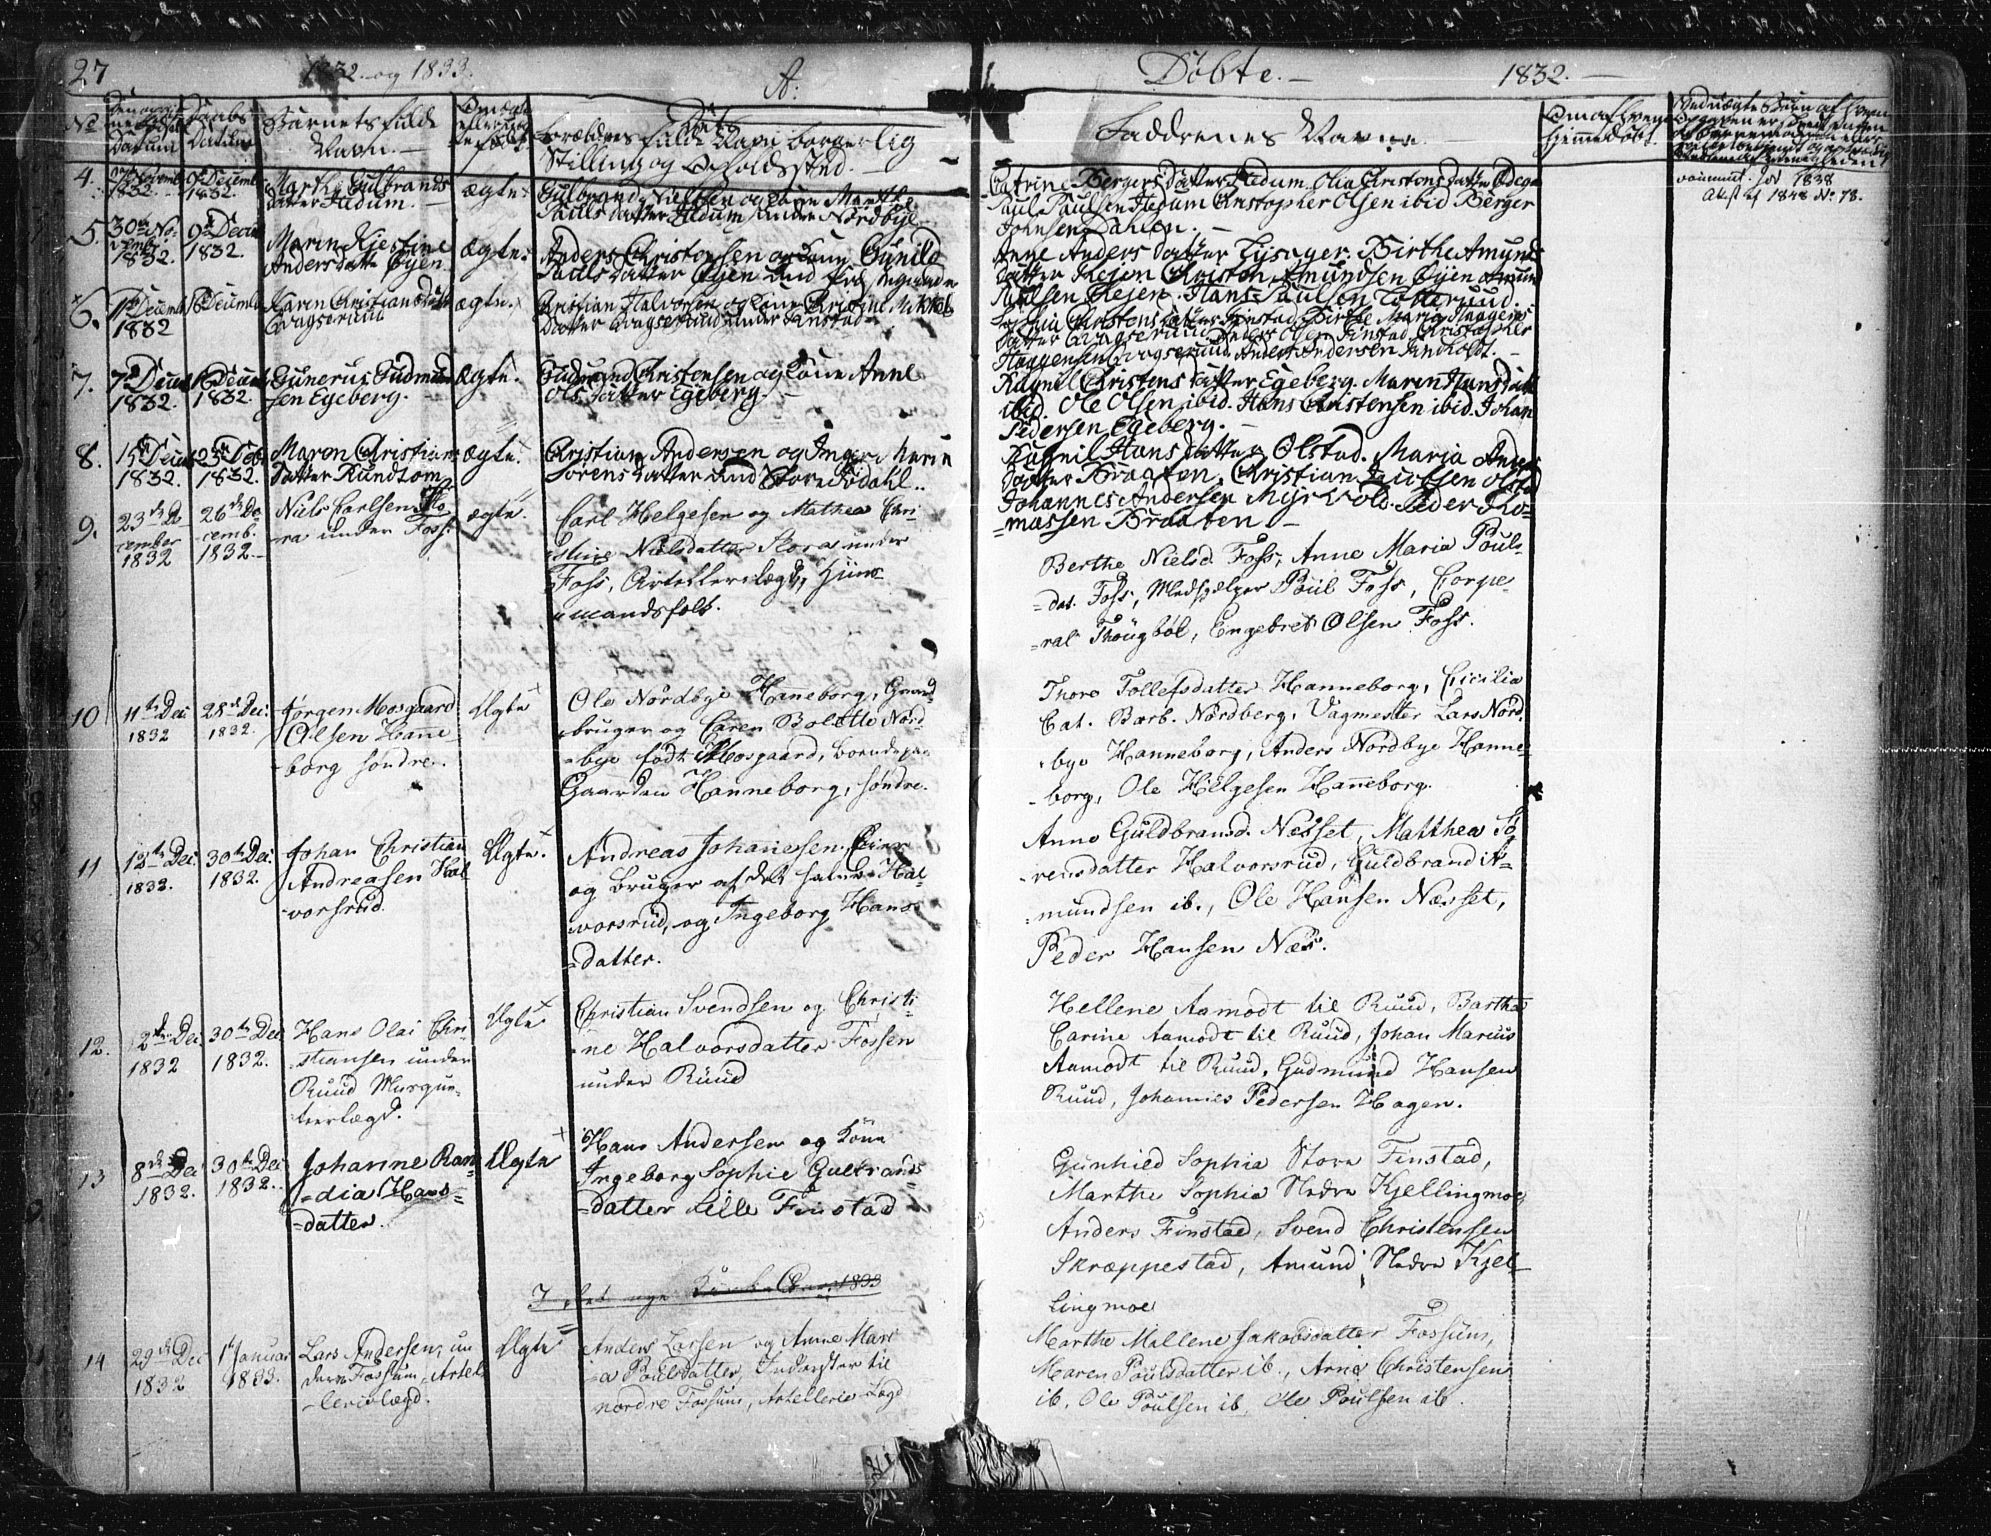 27 1832. og 1833. A: Døbte. 1832.
No
Datum
Daabs
Datum
Barnets fulde
Navn.
Forældres fulde Navn borgerlig
Stilling og Opholdssted.
Faddrenes Navne
hjemmedøbt.
4. 1832. 9de Decemb. 1832.
Marthe Gulbrands
datter Judum.
ægte.
Gulbrand Nielsen og Kone Marthe
Pauls datter Judum under Nordbye
Catrine Bergers datter Judum. Olia Christens datter
Paul Paulsen Judum Christopher Olsen ibid Berger
Johnsen Dahlen.
vaccinert. 1838
Attest af 1848 Nr. 78.
5. 30te No-
vemb. 1832. 9de Decem 1832.
Maren Kjestine
Andersdatte Øyen
ægte.
Anders Christophsen og Kone Gunild
Pauls datter Øyen und
Anne Anders datter Tysager. Birthe Amunds
datter Rejen. Christen Amundsen Øyen Amund
Paulsen Rejen. Hans Paulsen
6. 1832 16 Decemb
Karen Christiansdatt
ægte.
Cristian Halvorsen og Kone Christine Mikkels
datter Kragserud under Finstad
Sophia Christens datter Finstad. Birthe Maria Haagens
datter Kragserud. Anders Olsen Finstad Christopher
Haagensen Kragserud. Anders Andersen
7. 7de Decem 1832. 16 Decemb 1832.
Gunerius Gudmund
sen Egeberg.
Ægte.
Gudmund Christensen og Kone Anne
Ols datter Egeberg.
Ragnil Christens datter Egeberg. Maren Hansdatt
ibid. Ole Olsen ibid. Hans Christensen ibid. Johan
Pedersen Egeberg.
8. 15 Decem 1832. 23 Decb. 1832.
Maren Christians
datter Rundtom
ægte.
Cristian Andersen og Ingeri Marie
Sørens datter und Store Rødahl.
Ragnil Hans datter Olstad. Maria Anders
datter Braaten. Christian Olstad
Johannes Andersen Myrvold. Peder Tho-
massen Braaten
9. 23de De-
cember
1832 26de De-
cemb.
1832.
Niels Carlsen Sko-
ra under Foss.
ægte.
Carl Helgesen og Mathea Chri-
stine Nielsdatter Skora under
Foss, Artellerielægd, Huus-
mandsfolk.
Berthe Nielsd. Foss, Anne Maria Pouls-
dat. Foss, Medhjælper Poul Foss, Corpo-
ral Thougbøl, Engebret Olsen Foss.
10 11te Dec:
1832 28de Dec:
1832.
Jørgen Mosgaard
Olsen Hane-
borg søndre.
Ægte
Ole Nordbye Haneborg, Gaard-
bruger og Caren Bolette Nord-
bye født Mosgaard, boende paa
Gaarden Hanneborg, søndre.
Thore Tollefsdatter Hanneborg, Cicilia
Cat. Barb. Nordberg, Vagmester Lars Nord-
bye Hanneborg, Anders Nordbye Hanne-
borg, Ole Helgesen Hanneborg.
11 12te Dec:
1832. 30te Dec:
1832.
Johan Christian
Andreasen Hal-
vorsrud.
Ægte.
Andreas Johanesen, Eier
og bruger af det halve Hal-
vorsrud, og Ingeborg Hans-
datter.
Anne Guldbransd. Nesset, Matthea Sø-
rensdatter Halvorsrud, Guldbrand A-
mundsen ib., Ole Hansen Næsset,
Peder Hansen Næs.
12. 2den Dec:
1832 30te Dec:
1832.
Hans Olai Chri-
stiansen under
Ruud Musque-
teerlægd.
Ægte
Christian Svendsen og Christi-
ne Halvorsdatter Fossen
under Ruud
Hellene Aamodt til Ruud, Barthe
Carine Aamodt til Ruud, Johan Marius
Aamodt til Ruud, Gudmund Hansen
Ruud, Johannes Pedersen Hagen.
13 8de Dec:
1832. 30te Dec:
1832.
Johanne Ran-
dia Hans-
datter.
Ægte
Hans Andersen og Kone
Ingeborg Sophie Gulbrands-
datter Lille Finstad
Gunhild Sophia Store Finstad,
Marthe Sophia Nedre Kjellingmoe
Anders Finstad, Svend Christensen
Skræppestad, Amund Nedre Kjel-
lingmoe
I det nye Kirke Aar 1833
14 29de Dec
1832 1te Januar
1833.
Lars Andersen, un-
der Fossum, Artel-
lerielægd.
Ægte
Anders Larsen og Anne Mari-
a Poulsdatter, Inderster til
nordre Fossum, Artellerie Lægd
Marthe Mallene Jakobsdatter Fossum,
Maren Poulsdatter ib., Arne Christensen
ib, Ole Poulsen ib, Ole Poulsen ib.